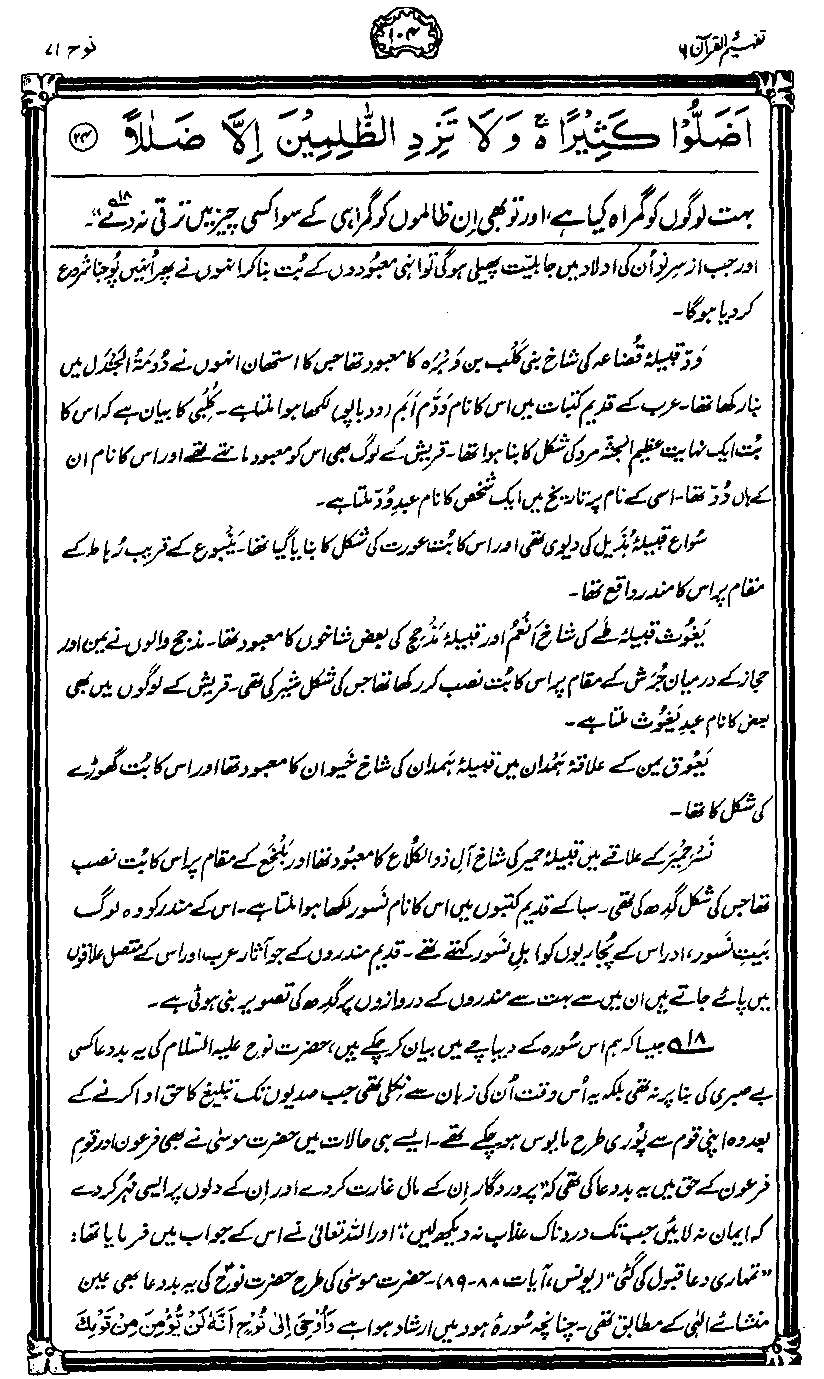 تفہیم القرآن ۶
۱۰۴
نوح ۷۱
اَضَلُّوْا كَثِيْرًا ەۚ وَلَا تَزِدِ الظّٰلِمِيْنَ اِلَّا ضَلٰلًا ۝۲۴
بہت لوگوں کو گمراہ کیا ہے، اور تو بھی اِن ظالموں کو گمراہی کے سوا کسی چیز میں ترقی نہ دے۱۸"۔
اور جب از سرِ نو اُن کی اولاد میں جاہلیت پھیلی ہو گی تو انہی معبُودوں کے بُت بنا کر انہوں نے پھر اُنہیں پُوجنا شروع
کر دیا ہو گا۔
وَدّ قبیلۂ قُضَاعہ کی شاخ بنی کَلْب بن وَبْرَہ کا معبود تھا جس کا استھان انہوں نے دُومَۃُ الجَنْدَل میں
بنا رکھا تھا۔ عرب کے قدیم کتبات میں اس کا نام وَدَّم اَبَم (ود باپو) لکھا ہوا ملتا ہے۔ کَلْبِی کا بیان ہے کہ اس کا
بُت ایک نہایت عظیم الجثّہ مرد کی شکل کا بنا ہوا تھا۔ قریش کے لوگ بھی اس کو معبود مانتے تھے اور اس کا نام ان
کے ہاں وُدّ تھا۔ اسی کے نام پر تاریخ میں ایک شخص کا نام عبدِ وُدّ ملتا ہے۔
سُواع قبیلۂ ہُذَیل کی دیوی تھی اور اس کا بُت عورت کی شکل کا بنایا گیا تھا۔ یَنْبُوع کے قریب رُہاط کے
مقام پر اس کا مندر واقع تھا۔
یَغُوث قبیلۂ طے کی شاخ اَنْعُم اور قبیلۂ مَذْحِج کی بعض شاخوں کا معبود تھا۔ مذحج والوں نے یمن اور
حجاز کے درمیان جُرَش کے مقام پر اس کا بُت نصب کر رکھا تھا جس کی شکل شیر کی تھی۔ قریش کے لوگوں میں بھی
بعض کا نام عبدِ یَغُوث ملتا ہے۔
یَعُوق یمن کے علاقۂ ہَمْدان میں قبیلۂ ہَمْدان کی شاخ خَیْوان کا معبود تھا اور اس کا بُت گھوڑے
کی شکل کا تھا۔
نَسْر حِمْیَر کے علاقے میں قبیلۂ حمیر کی شاخ آلِ ذوالکُلاع کا معبُود تھا اور بَلْخَع کے مقام پر اس کا بُت نصب
تھا جس کی شکل گِدھ کی تھی۔ سبا کے قدیم کتبوں میں اس کا نام نَسور لکھا ہوا ملتا ہے۔ اس کے مندر کو وہ لوگ
بَیتِ نَسور، اور اس کے پُجاریوں کو اہلِ نَسور کہتے تھے۔ قدیم مندروں کے جو آثار عرب اور اس کے متصل علاقوں
میں پائے جاتے ہیں ان میں سے بہت سے مندروں کے دروازوں پر گِدھ کی تصویر بنی ہوئی ہے۔
۱۸ جیسا کہ ہم اس سُورہ کے دیباچے میں بیان کر چکے ہیں، حضرت نوح علیہ السلام کی یہ بددعا کسی
بے صبری کی بنا پر نہ تھی بلکہ یہ اُس وقت اُن کی زبان سے نِکلی تھی جب صدیوں تک تبلیغ کا حق ادا کرنے کے
بعد وہ اپنی قوم سے پُوری طرح مایوس ہو چکے تھے۔ ایسے ہی حالات میں حضرت موسیٰ نے بھی فرعون اور قومِ
فرعون کے حق میں یہ بددعا کی تھی کہ "پروردگار اِن کے مال غارت کر دے اور اِن کے دلوں پر ایسی مُہر کر دے
کہ ایمان نہ لائیں جب تک دردناک عذاب نہ دیکھ لیں"، اور اللہ تعالیٰ نے اس کے جواب میں فرمایا تھا:
"تمہاری دعا قبول کی گئی" (یونس، آیات ۸۸-۸۹)۔ حضرت موسیٰ کی طرح حضرت نوحؑ کی یہ بددعا بھی عین
منشائے الٰہی کے مطابق تھی۔ چنانچہ سُورۂ ہود میں ارشاد ہوا ہے وَاُوْحِیَ اِلٰی نُوْحٍ اَنَّهٗ لَنْ يُّؤْمِنَ مِنْ قَوْمِكَ